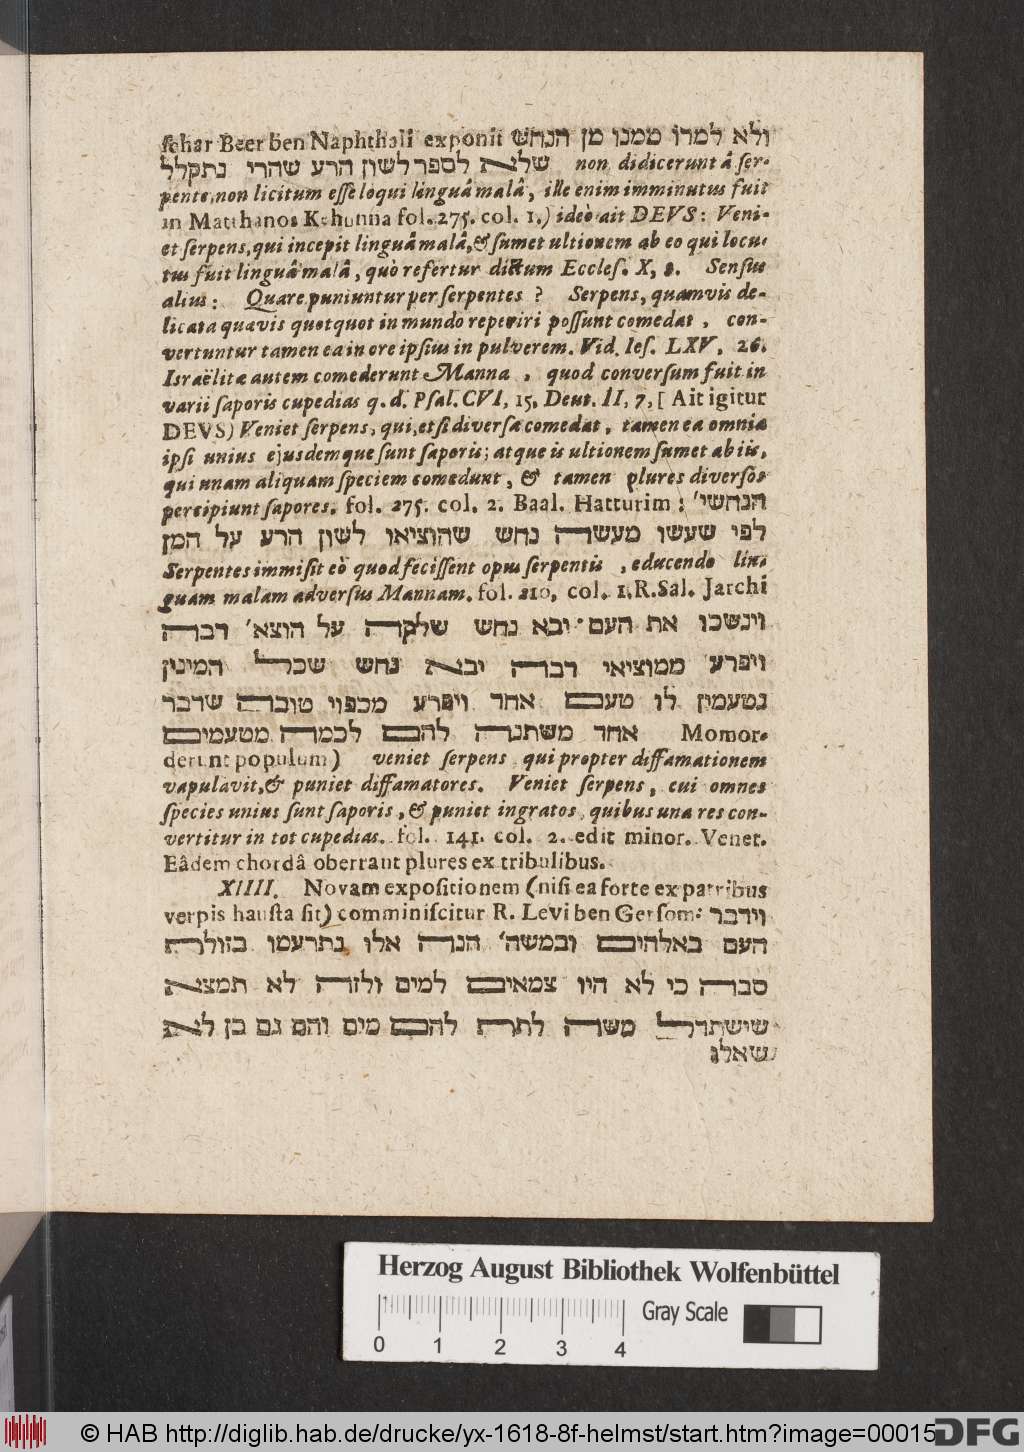 ſchar Beer ben Naphthali exponit ולא למדו ממנו מן הנחש
שלא לספר לשון הרע שהרי נתקלל non didicerunt â ſer-
pente, non licitum eſſe loqui linguâ malâ, ille enim imminutus fuit
in Matthanos Kehunna fol. 275. col. 1.) ideò ait DEVS: Veni-
et ſerpens, qui incepit linguâ malâ, & ſumet ultionem ab eo qui locu-
tus fuit linguâ malâ, quò refertur dictum Eccleſ. X, 8. Senſus
alius: Quare puniuntur per ſerpentes ? Serpens, quamvis de-
licata quævis quotquot in mundo reperiri poſſunt comedat, con-
vertuntur tamen ea in ore ipſius in pulverem. Vid. Ieſ. LXV, 26.
Israëlitæ autem comederunt Manna, quod converſum fuit in
varii ſaporis cupedias q. d. Pſal. CVI, 15, Deut. II, 7, [ Ait igitur
DEVS) Veniet ſerpens, qui, etſi diverſa comedat, tamen ea omnia
ipſi unius ejusdemque ſunt ſaporis; atque is ultionem ſumet ab iis,
qui unam aliquam ſpeciem comedunt, & tamen plures diverſos
percipiunt ſapores. fol. 275. col. 2. Baal. Hatturim: הנחשי'
לפי שעשו מעשה נחש שהוציאו לשון הרע על המן
Serpentes immiſit eò quod feciſſent opus ſerpentis, educendo lin-
guam malam adverſus Mannam. fol. 210, col. 1. R. Sal. Jarchi
וינשכו את העם· יבא נחש שלקה על הוצא' דבה
ויפרע ממוציאי דבה יבא נחש שכל המינין
נטעמין לו טעם אחד ויפרע מכפוי טובה שדבר
אחד משתנה להם לכמה מטעמים Momor-
derunt populum) veniet ſerpens, qui propter diffamationem
vapulavit, & puniet diffamatores. Veniet ſerpens, cui omnes
ſpecies unius ſunt ſaporis, & puniet ingratos, quibus una res con-
vertitur in tot cupedias. fol. 141. col. 2. edit minor. Venet.
Eâdem chordâ oberrant plures ex tribulibus.
XIIII. Novam expoſitionem (niſi ea forte ex patribus
verpis hauſta ſit) comminiſcitur R. Levi ben Gerſom: וידבר
העם באלהים ובמשה' הנה אלו נתרעמו בזולת
סבה כי לא היו צמאים למים ולזה לא תמצא
שישתדל משה לתת להם מים והם גם כן לא
שאלו
Herzog August Bibliothek Wolfenbüttel
Gray Scale
0 1 2 3 4
© HAB http://diglib.hab.de/drucke/yx-1618-8f-helmst/start.htm?image=00015
DFG